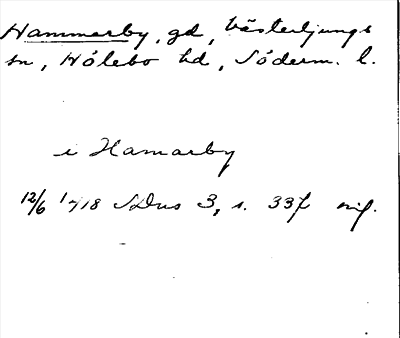 Hammarby, gd, Västerljungs
sn, Hölebo hd, Söderm. l.
i Hamarby
12/6 1418 SDns 3, s. 337 nif.